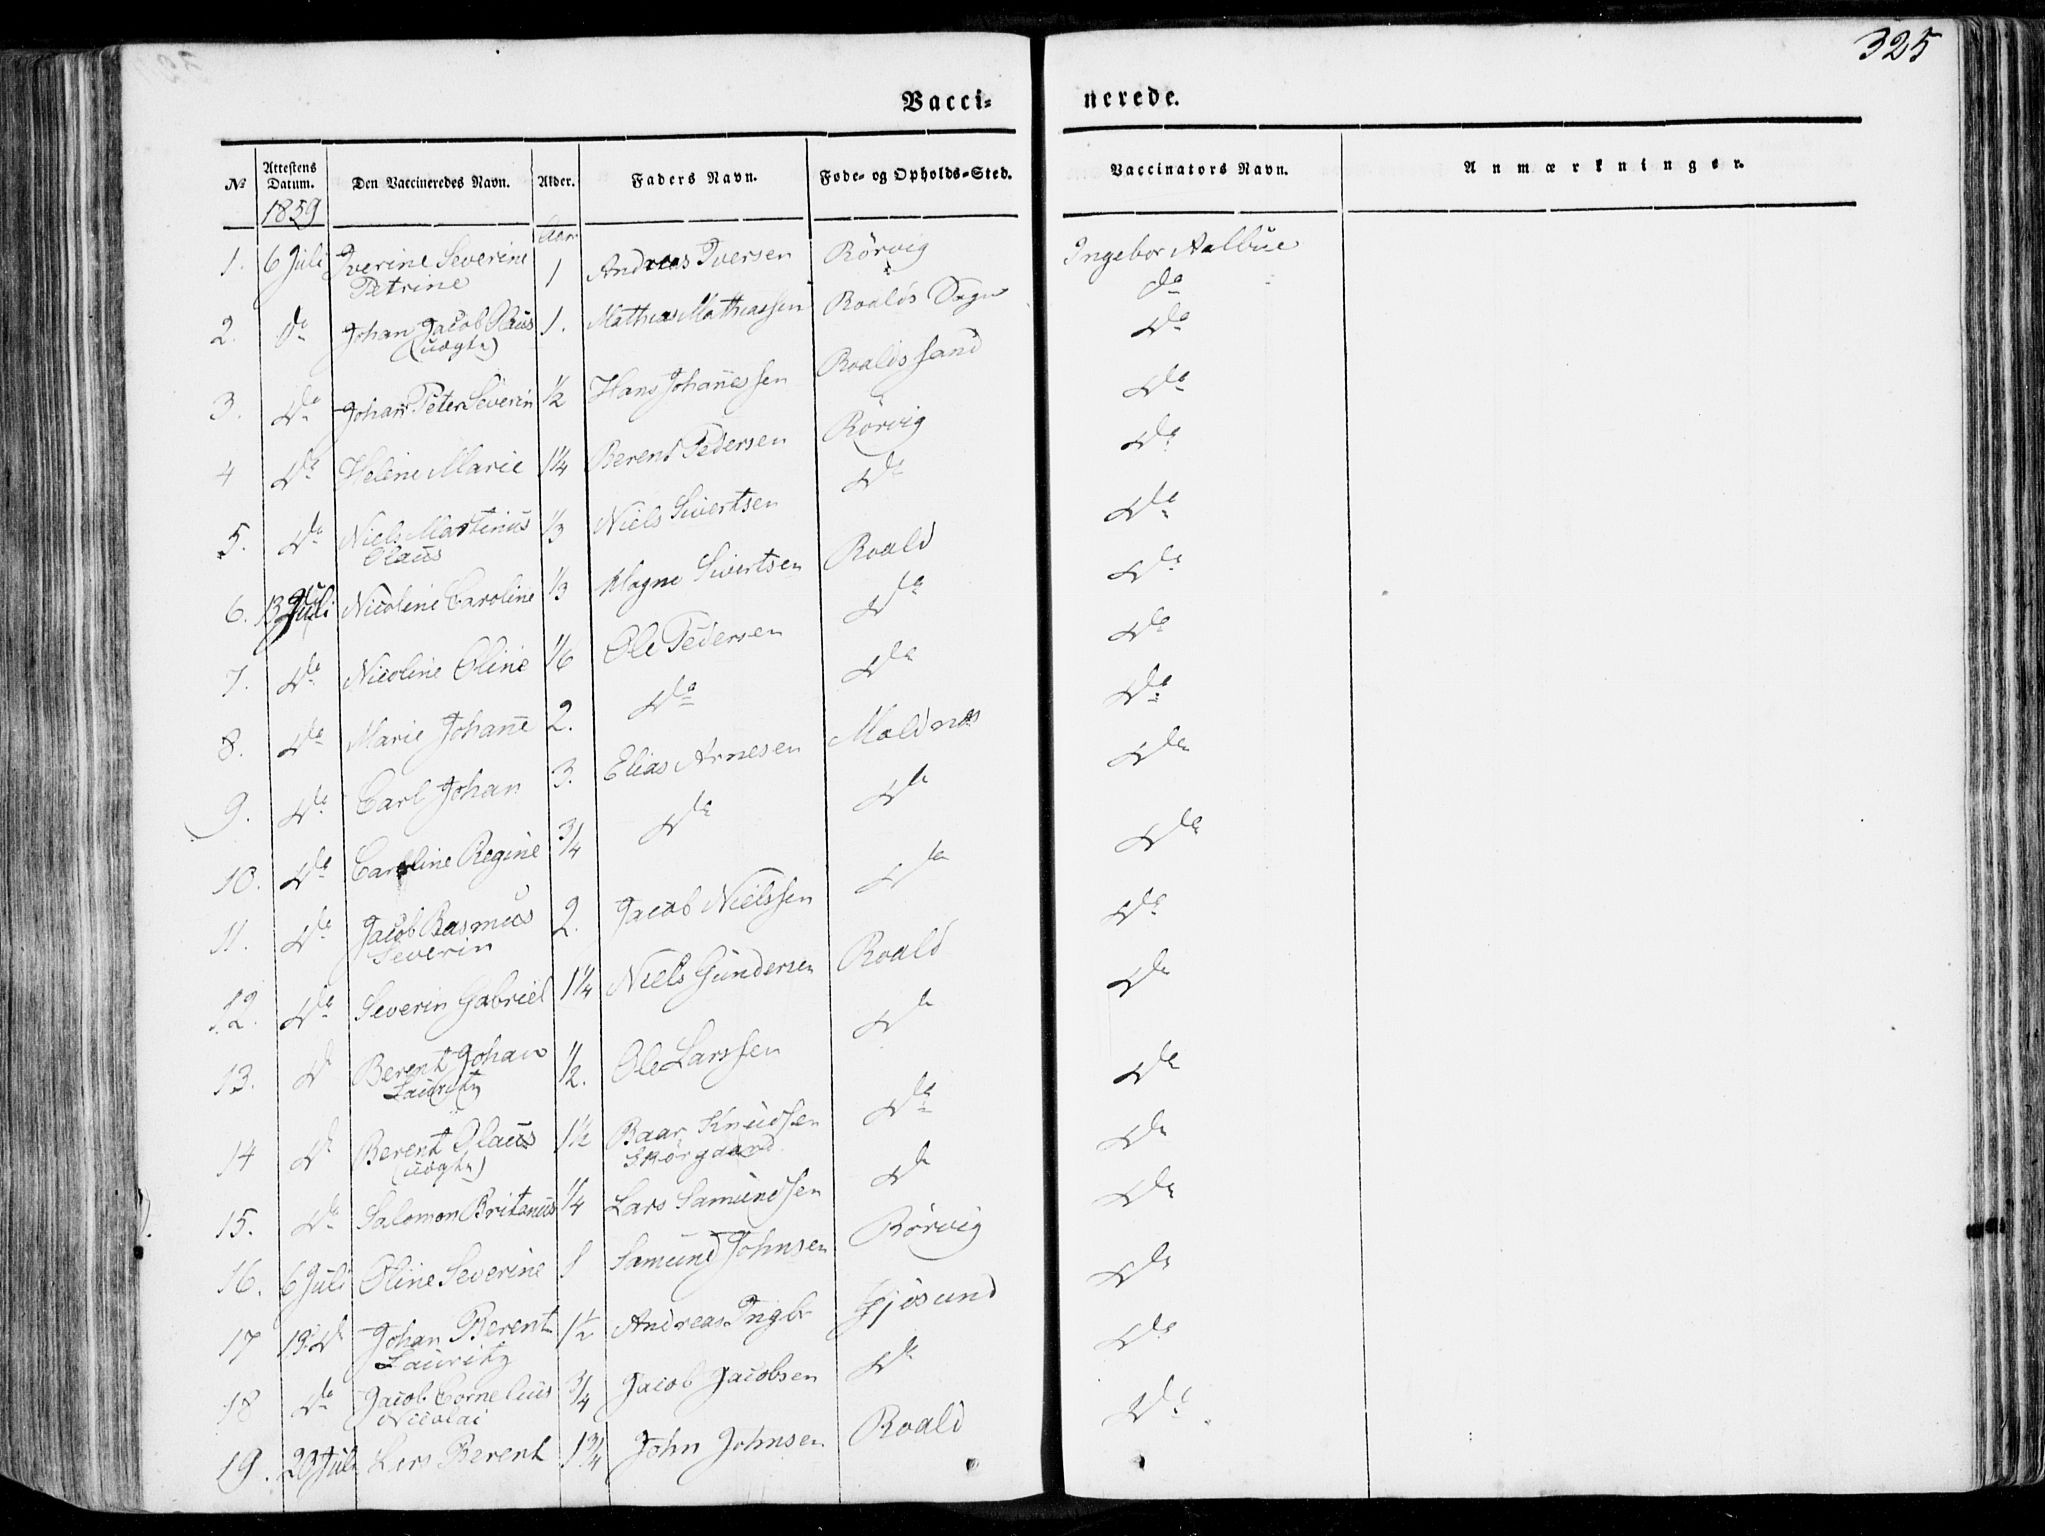 325
Vacci- nerede.
№ Attestens Datum. Den Vaccineredes Navn. Alder. Faders Navn. Fode- og Opholds-Sted. Vaccinators Navn. Anmærkninger.
1859
Aar
1. 6 Juli Iverine Severine 1 Andreas Iversen Rörvig Ingebor Aalbue
Petrine
2. do Johan Jacob Olaus 1. Mathias Mathiassen Roalds do
(uægte)
3. Do Johan Peter Severin 1/2 Hans Johanessen Roaldssand Do
4 Do Helene Marie 1 1/4 Berent Pedersen Rörvig Do
5. Do Niels Martinus 1/3 Niels Sivertsen Do Do
Olaus
6. 13 Juli Nicoline Caroline 1/3 Mogne Sivertsen Roald Do
7. Do Nicoline Oline 1/6 Ole Pedersen Do Do
8. Do Marie Johane 2. Do Do Do
9. Do Carl Johan 3. Elias Arnesen Moldnæs Do
10. Do Caroline Regine 3/4 Do Do Do
11. Do Jacob Rasmus 2. Jacob Nielssen Do Do
Severin
12. Do Severin Gabriel 1 1/4 Niels Gundersen Roald Do
13. Do Berent Johan 1/2. Ole Larssen Do Do
Lauritz
14 Do Berent Olaus 1 1/2 Baar Knudsen Do Do
(uægte) Skorgaard
15. Do Salomon Britanus 1/4 Lars Samundsen Do Do
16. 6 Juli Oline Severine 1 Samund Johnsen Rörvig Do
17 19 Do Johan Berent 1 1/2 Andreas Ingb Gjösund Do
Lauritz
18 Do Jacob Cornelius 3/4 Jacob Jacobsen Do Do
Nicolai
19. 20 Juli Lars Berent 1 3/4 John Johnsen Roald Do